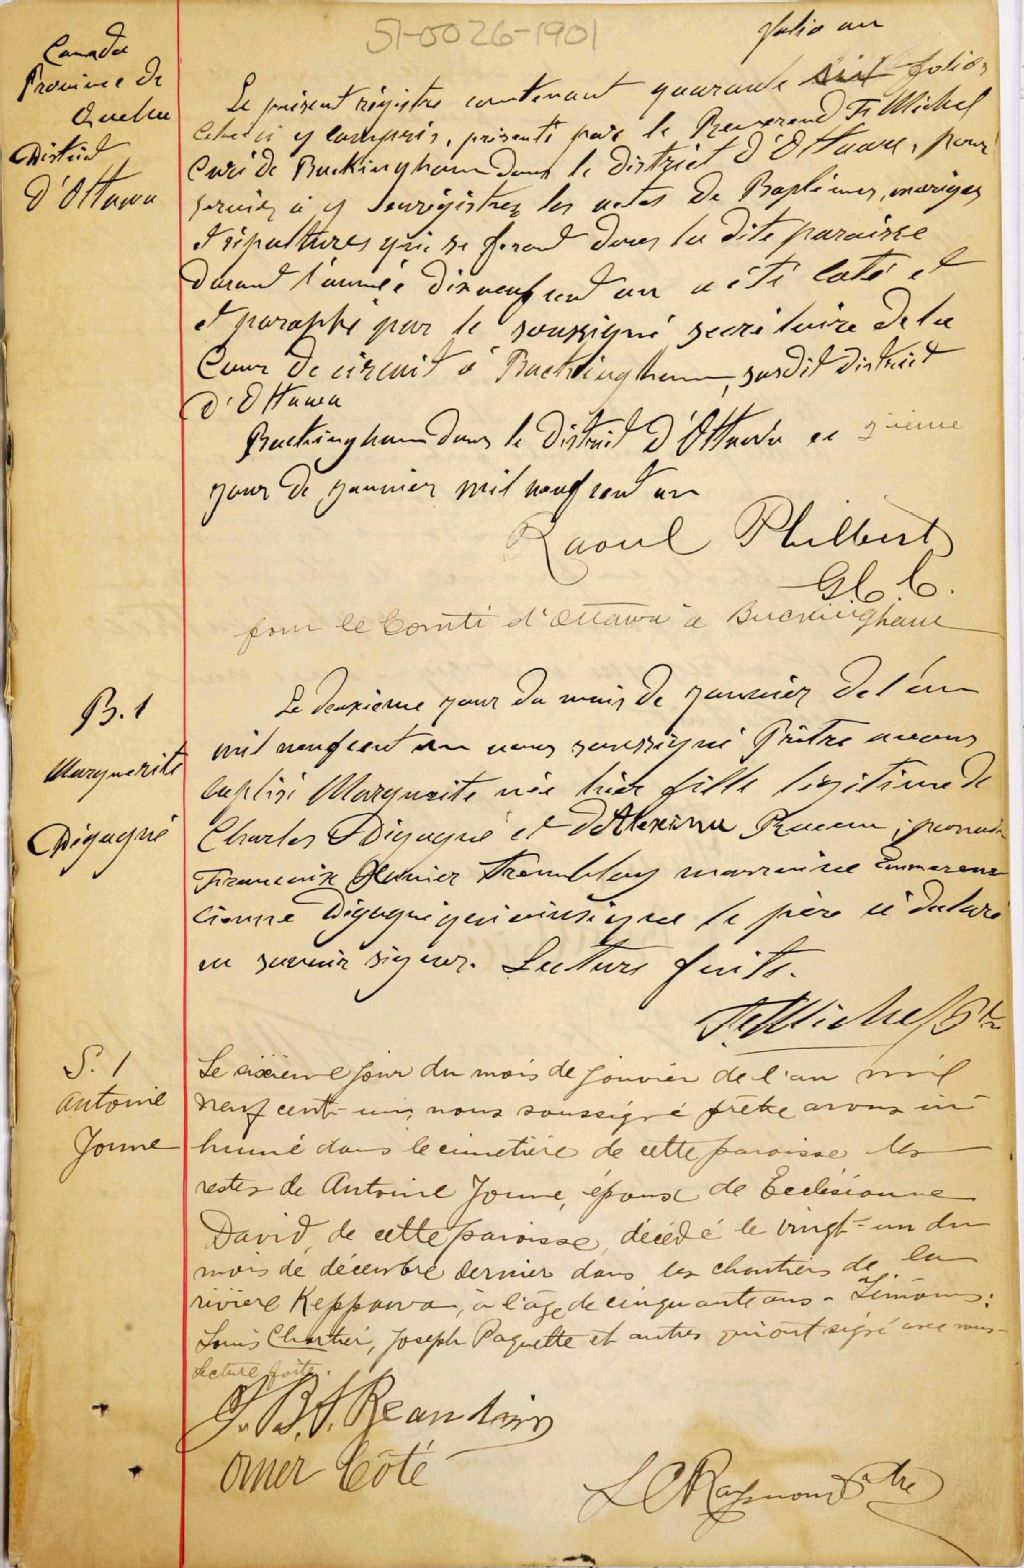 51-0026-1901
folio un
Canada
Province de
Quebec
District
d'Ottawa
Le présent régistre contenant quarante six folios
Celui ci y compris, présenté par le Reverend Fr Michel
Curé de Buckingham dans le district d'Ottawa, pour
servir à y enrégistrer les actes de Baptêmes, mariges
et sépultures qui se feront dans la dite paroisse
durant l'année dixneuf cent un a été coté et
et paraphé par le soussigné secrétaire de la
Cour de circuit à Buckingham, susdit district
d'Ottawa
Buckingham dans le district d'Ottawa ce
jour de janvier mil neuf cent un
Raoul Philbert
G. C. C.
pour le Comté d'Ottawa à Buckingham
B. 1
Marguerite
Dégagné
Le deuxième jour du mois de janvier de l'an
mil neuf cent un nous soussigné Prêtre avons
baptisé Marguerite née hier fille légitime de
Charles Dégagné et d'Alexina parrain
François Tremblay marraine
Dégagné qui ainsi que le père a déclaré
ne savoir signer. Lecture faite.
Fr Michel Ptre
S. 1
Antoine
Jomme
Le sixième jour du mois de janvier de l'an mil
neuf cent-un, nous soussigné prêtre avons in-
humé dans le cimetière de cette paroisse les
restes de Antoine Jomme, époux de
David, de cette paroisse, décédé le vingt-un du
mois de décembre dernier dans les chantiers de la
rivière Keppawa, à l'âge de cinquante ans. Témoins:
Louis Chartier, Joseph Paquette et autres qui ont signé avec nous-
Lecture faite.
J. B. S. Beaudoin
Omer Côté
L C Raymond Ptre